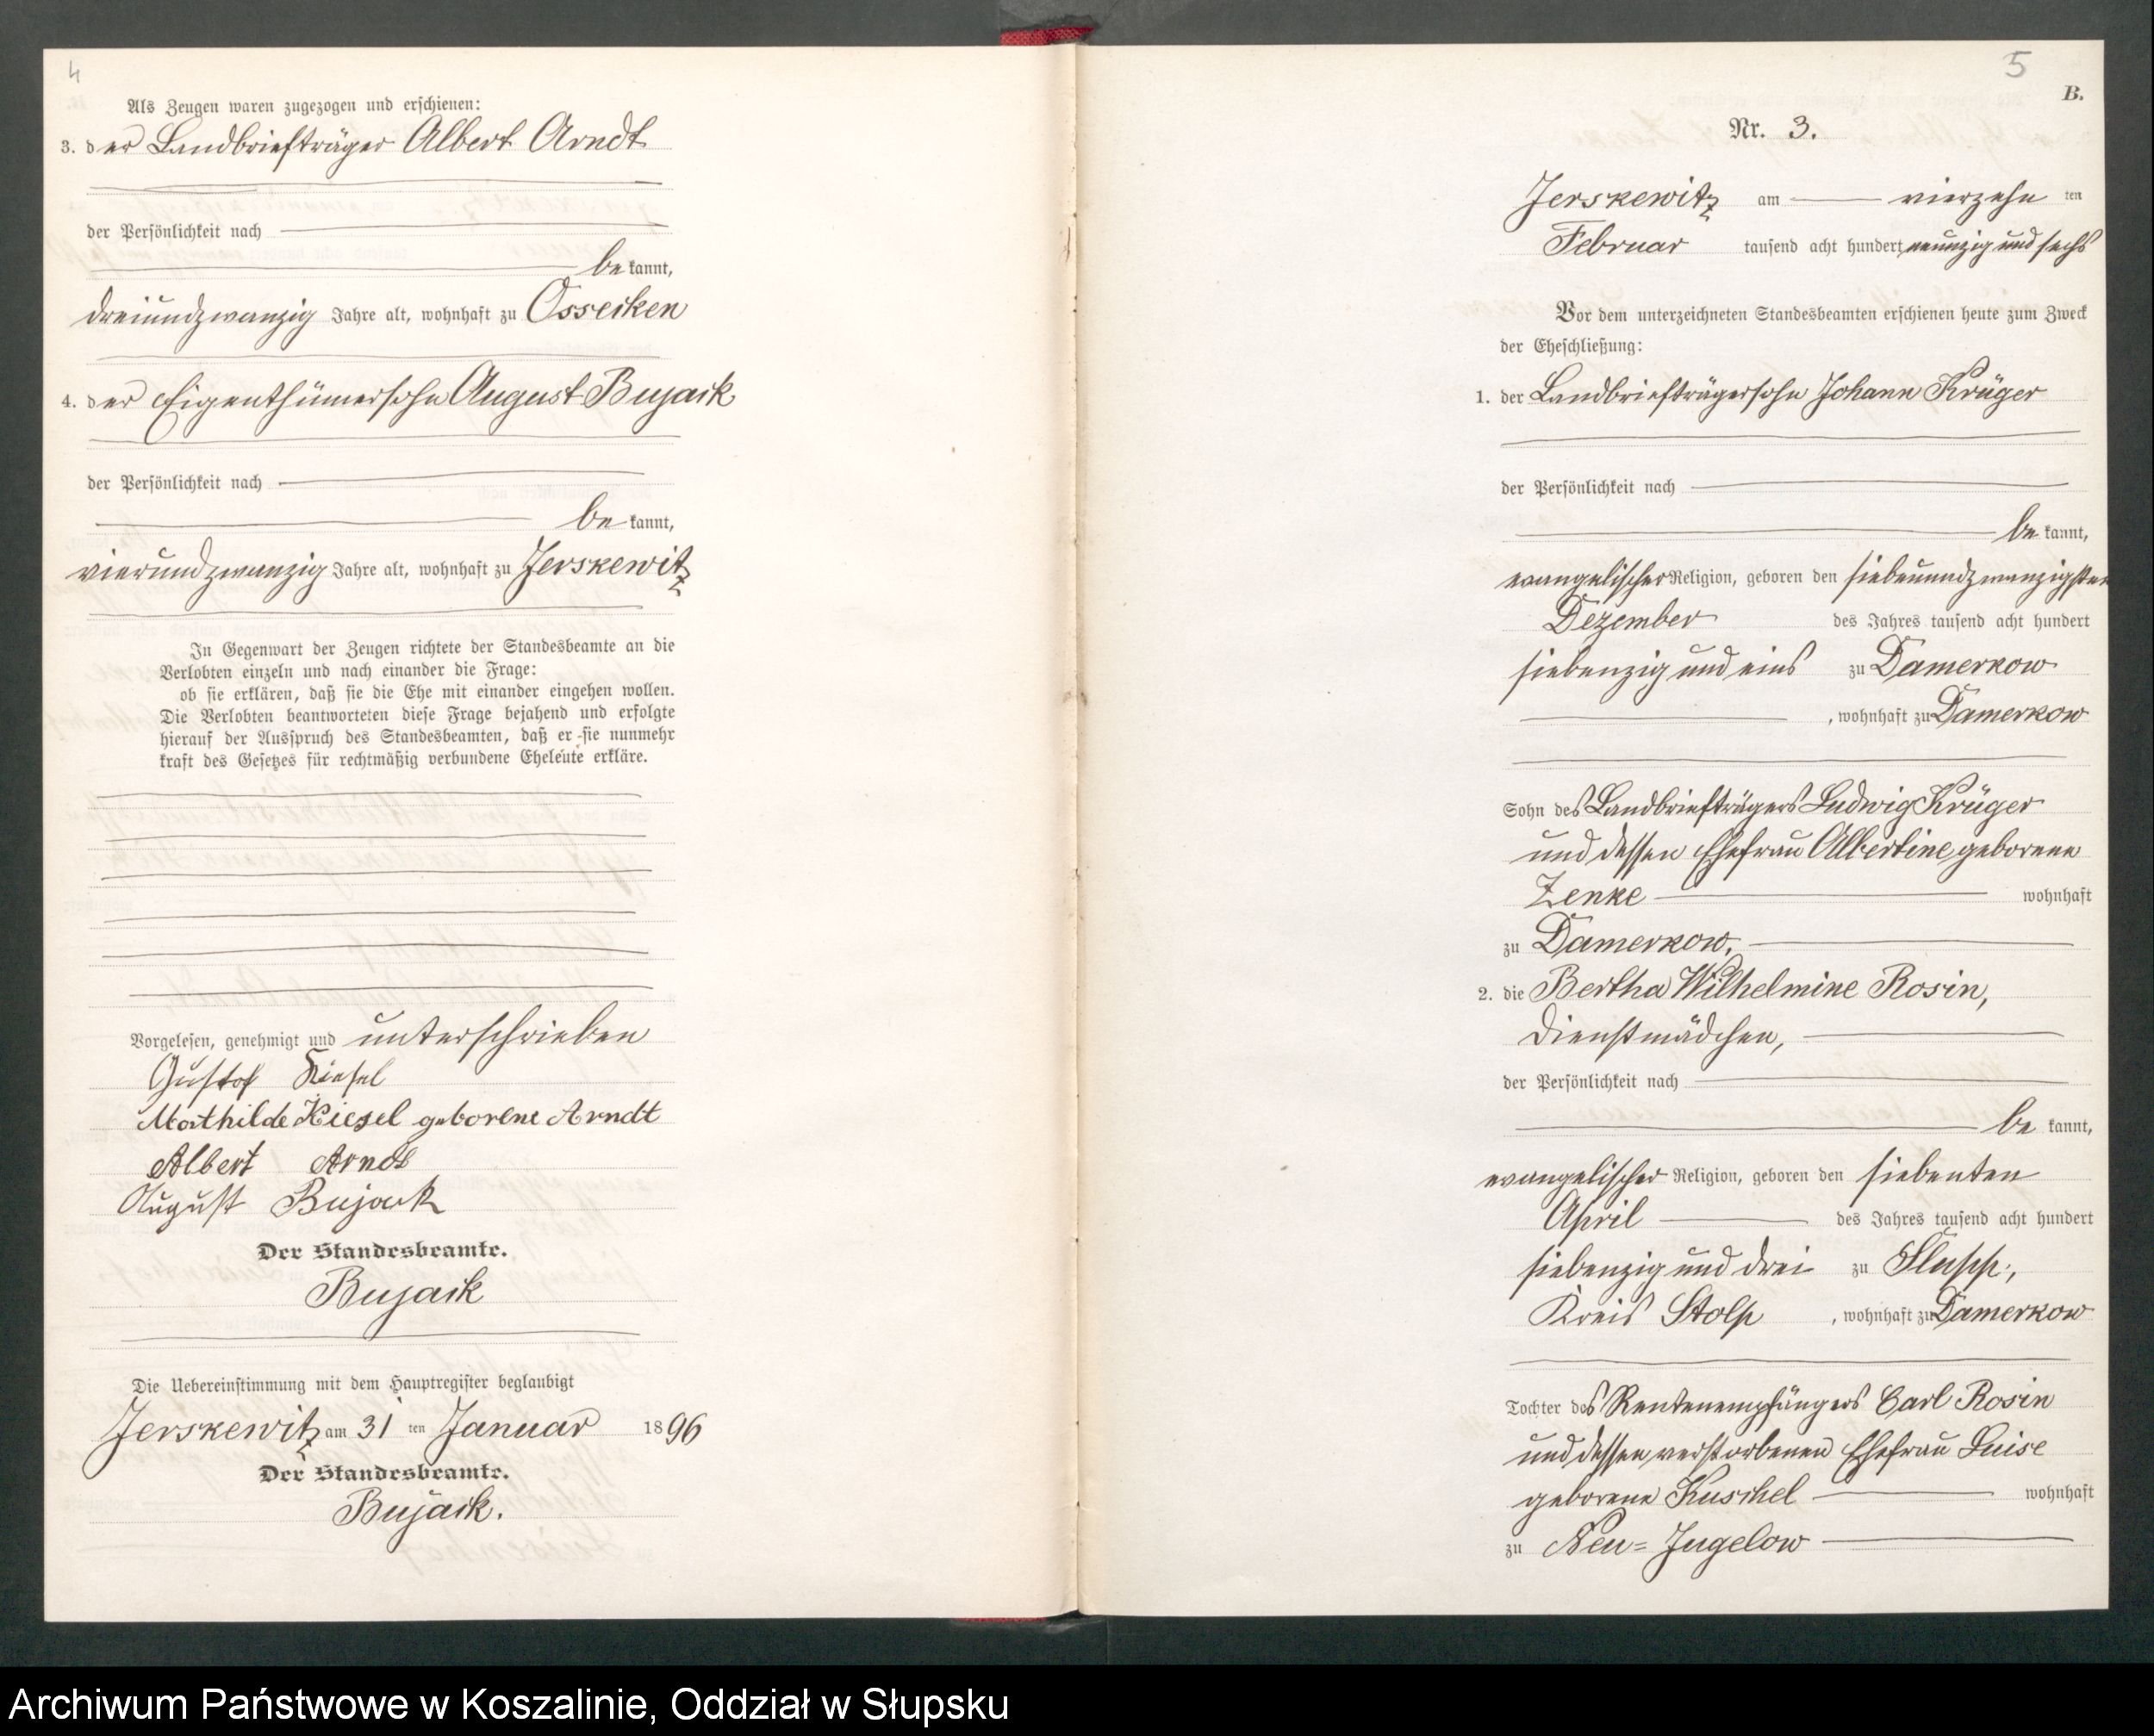 4
Als Zeugen waren zugezogen und erschienen:
3. der Landbriefträger Albert Arndt
der Persönlichkeit nach
bekannt,
dreiundzwanzig Jahre alt, wohnhaft zu Ossecken
4. der Eigenthümersohn August Bujack
der Persönlichkeit nach
bekannt,
vierundzwanzig Jahre alt, wohnhaft zu Jerskewitz
In Gegenwart der Zeugen richtete der Standesbeamte an die
Verlobten einzeln und nach einander die Frage:
ob sie erklären, daß sie die Ehe mit einander eingehen wollen.
Die Verlobten beantworteten diese Frage bejahend und erfolgte
hierauf der Ausspruch des Standesbeamten, daß er sie nunmehr
kraft des Gesetzes für rechtmäßig verbundene Eheleute erkläre.
Vorgelesen, genehmigt und unterschrieben
Gustof Kiesel
Mathilde Kiesel geborene Arndt
Albert Arndt
August Bujack
Der Standesbeamte.
Bujack
Die Uebereinstimmung mit dem Hauptregister beglaubigt
Jerskewitz am 31 ten Januar 1896
Der Standesbeamte.
Bujack.
5
B.
Nr. 3.
Jerskewitz am vierzehn ten
Februar tausend acht hundert neunzig und sechs
Vor dem unterzeichneten Standesbeamten erschienen heute zum Zweck
der Eheschließung:
1. der Landbriefträgersohn Johann Krüger
der Persönlichkeit nach
bekannt,
evangelischer Religion, geboren den siebenundzwanzigsten
Dezember des Jahres tausend acht hundert
siebenzig und eins zu Damerkow
, wohnhaft zu Damerkow
Sohn des Landbriefträgers Ludwig Krüger
und dessen Ehefrau Albertine geborene
Zenke wohnhaft
zu Damerkow,
2. die Bertha Wilhelmine Rosin,
Dienstmädchen,
der Persönlichkeit nach
bekannt,
evangelischer Religion, geboren den siebenten
April des Jahres tausend acht hundert
siebenzig und drei zu
Kreis Stolp , wohnhaft zu Damerkow
Tochter des Rentenempfängers Carl Rosin
und dessen verstorbenen Ehefrau Luise
geborene Kuschel wohnhaft
zu Neu=Jugelow
Archiwum Państwowe w Koszalinie, Oddział w Słupsku